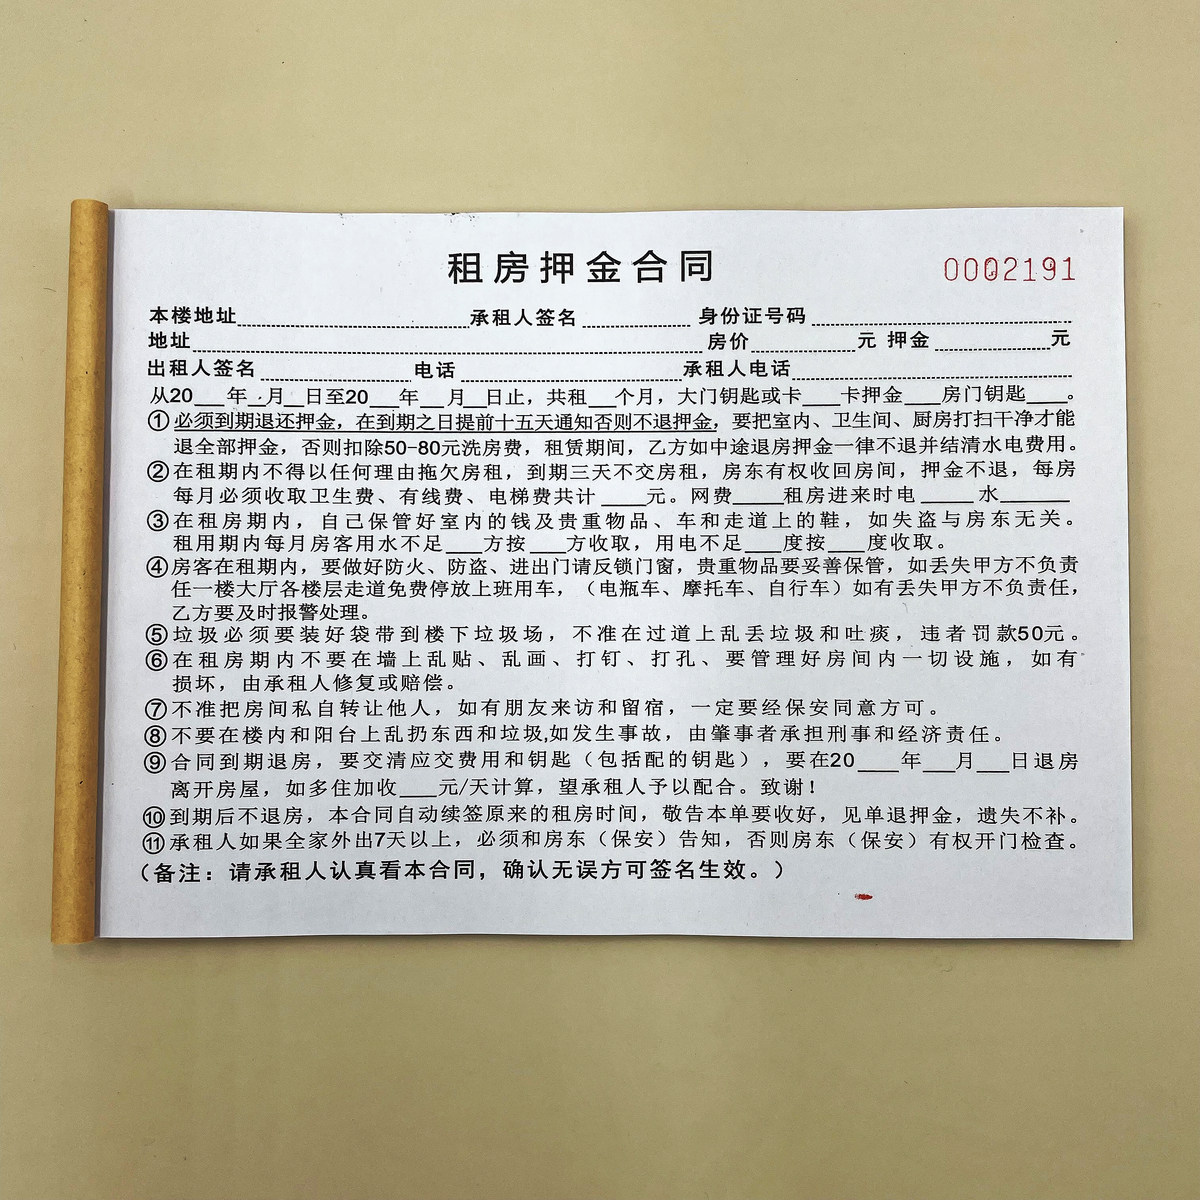 租房押金合同
0002191
本楼地址 承租人签名 身份证号码
地址 房价 元 押金 元
出租人签名 电话 承租人电话
从20___年__月__日至20___年__月__日止，共租___个月，大门钥匙或卡____卡押金____房门钥匙____。
①必须到期退还押金，在到期之日提前十五天通知否则不退押金，要把室内、卫生间、厨房打扫干净才能
退全部押金，否则扣除50-80元洗房费，租赁期间，乙方如中途退房押金一律不退并结清水电费用。
②在租期内不得以任何理由拖欠房租，到期三天不交房租，房东有权收回房间，押金不退，每房
每月必须收取卫生费、有线费、电梯费共计____元。网费____租房进来时电____水______
③在租房期内，自己保管好室内的钱及贵重物品、车和走道上的鞋，如失盗与房东无关。
租用期内每月房客用水不足___方按___方收取，用电不足___度按___度收取。
④房客在租期内，要做好防火、防盗、进出门请反锁门窗，贵重物品要妥善保管，如丢失甲方不负责
任一楼大厅各楼层走道免费停放上班用车，（电瓶车、摩托车、自行车）如有丢失甲方不负责任，
乙方要及时报警处理。
⑤垃圾必须要装好袋带到楼下垃圾场，不准在过道上乱丢垃圾和吐痰，违者罚款50元。
⑥在租房期内不要在墙上乱贴、乱画、打钉、打孔、要管理好房间内一切设施，如有
损坏，由承租人修复或赔偿。
⑦不准把房间私自转让他人，如有朋友来访和留宿，一定要经保安同意方可。
⑧不要在楼内和阳台上乱扔东西和垃圾,如发生事故，由肇事者承担刑事和经济责任。
⑨合同到期退房，要交清应交费用和钥匙（包括配的钥匙），要在20____年___月___日退房
离开房屋，如多住加收___元/天计算，望承租人予以配合。致谢！
⑩到期后不退房，本合同自动续签原来的租房时间，敬告本单要收好，见单退押金，遗失不补。
⑪承租人如果全家外出7天以上，必须和房东（保安）告知，否则房东（保安）有权开门检查。
（备注：请承租人认真看本合同，确认无误方可签名生效。）